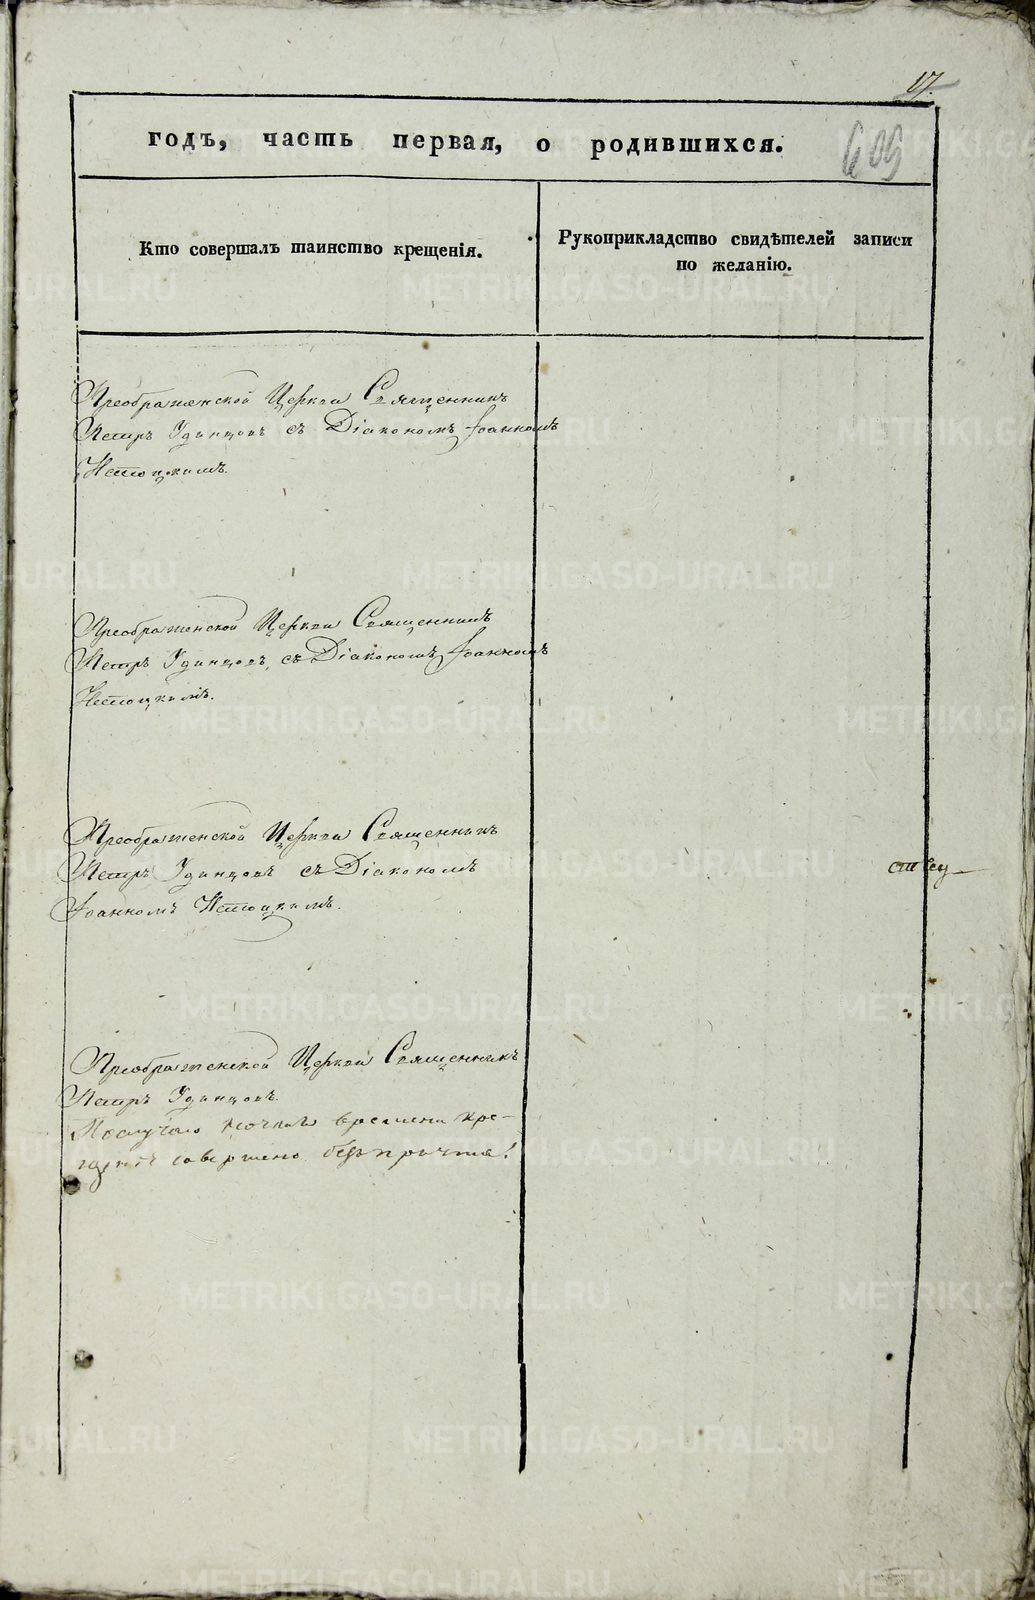 17.
годъ, часть первая, о родившихся.
609
Кто совершалъ таинство крещенія.
Рукоприкладство свидѣтелей записи
по желанію.
Преображенской Церкви Священникъ
Петръ Удинцовъ съ Діакономъ Іоанномъ
Преображенской Церкви Священникъ
Петръ Удинцовъ, съ Діакономъ Іоанномъ
Преображенской Церкви Священникъ
Петръ Удинцовъ съ Діакономъ
Іоанномъ
Преображенской Церкви Священникъ
Петръ Удинцовъ.
По случаю времени кре-
щеніе совершено безъ причта!
METRIKI.GASO-URAL.RU